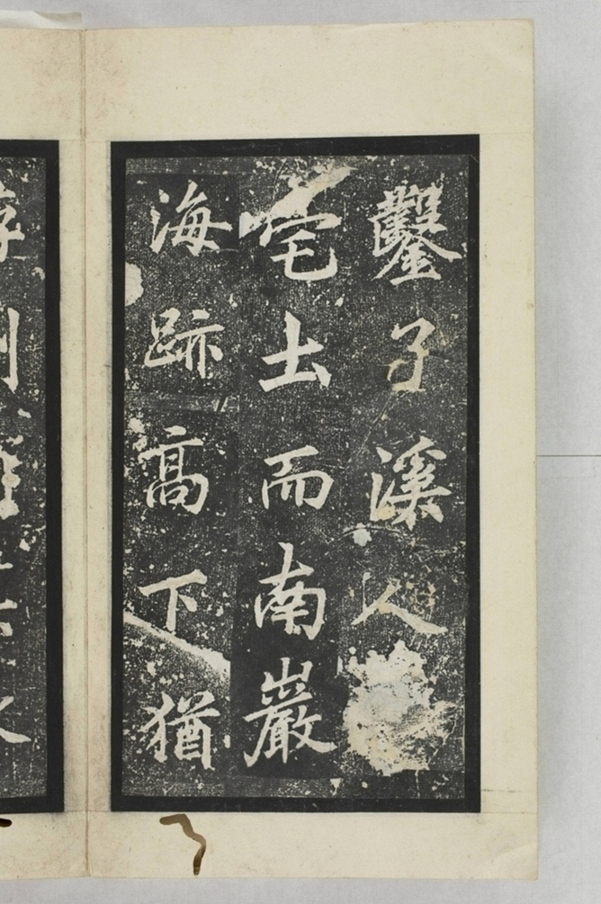 鑿子溪人
宅土而南巖
海跡高下猶